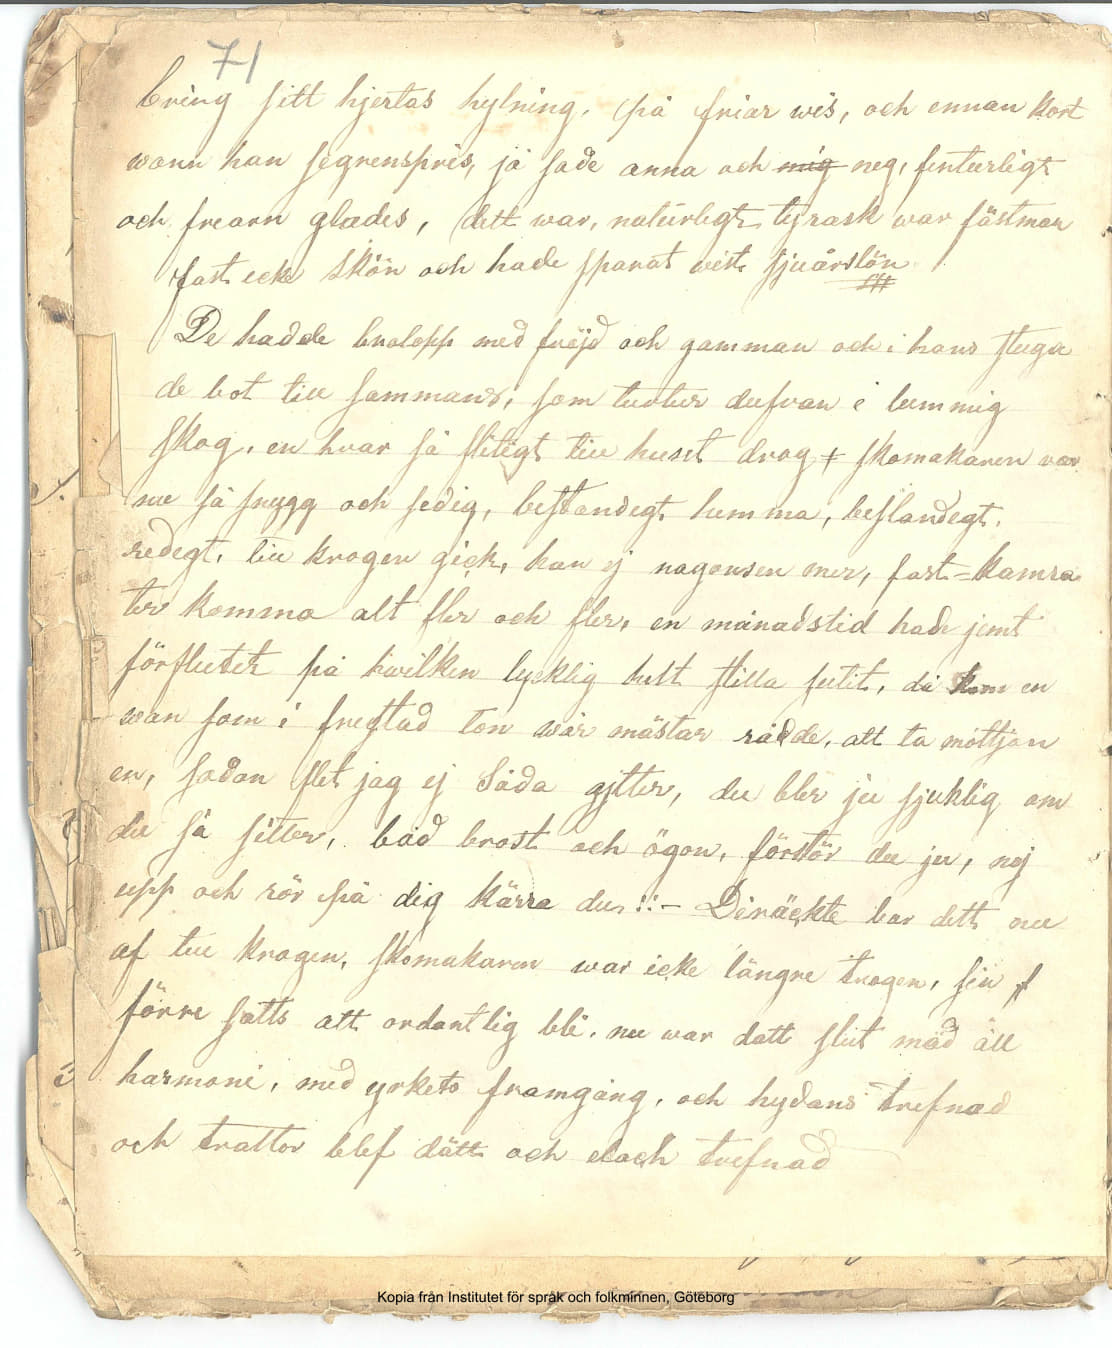 71
bring sitt hjertas hylning, på friar wis, och ennan kort
wann han segrenspris, ja sade anna och mig neg, sinterligt
och frearn glades, dett war, naturligt ty rask war fästman
fast icke skön och hade sparat vist sjuårslön
De hadde brolopp med fröjd och gamman och i hans stuga
de bot till sammans, som tuvtur dufvan i lummig
skog, en hvar så flitigt till huset drog + skomakaren var
nu så snygg och sedig, beständegt hemma, beständegt,
redegt, till krogen gick, han ej nagonsen mer, fast = kamra
ter komma alt fler och fler, en månadstid hade jemt
förflutet på hvilken lycklig helt stilla sutit, då kom en
wän som i frestad ton wår mästar rådde, att ta mottjon
en, sadan flet jag ej såda gitter, du bler ju sjuklig om
du så sitter, båd brost och ögon, förstör du ju, nej
upp och rör på dig kärra du !:- Diräckte bar dett nu
af till krogen, skomakaren war icke längre trogen, sin f
förre satts att ordantlig bli, nu war datt slut mäd all
harmoni, med yrkets framgång, och hydans trefnad
och trattor blef dätt och elack trefnad
Kopia från Institutet för språk och folkminnen, Göteborg